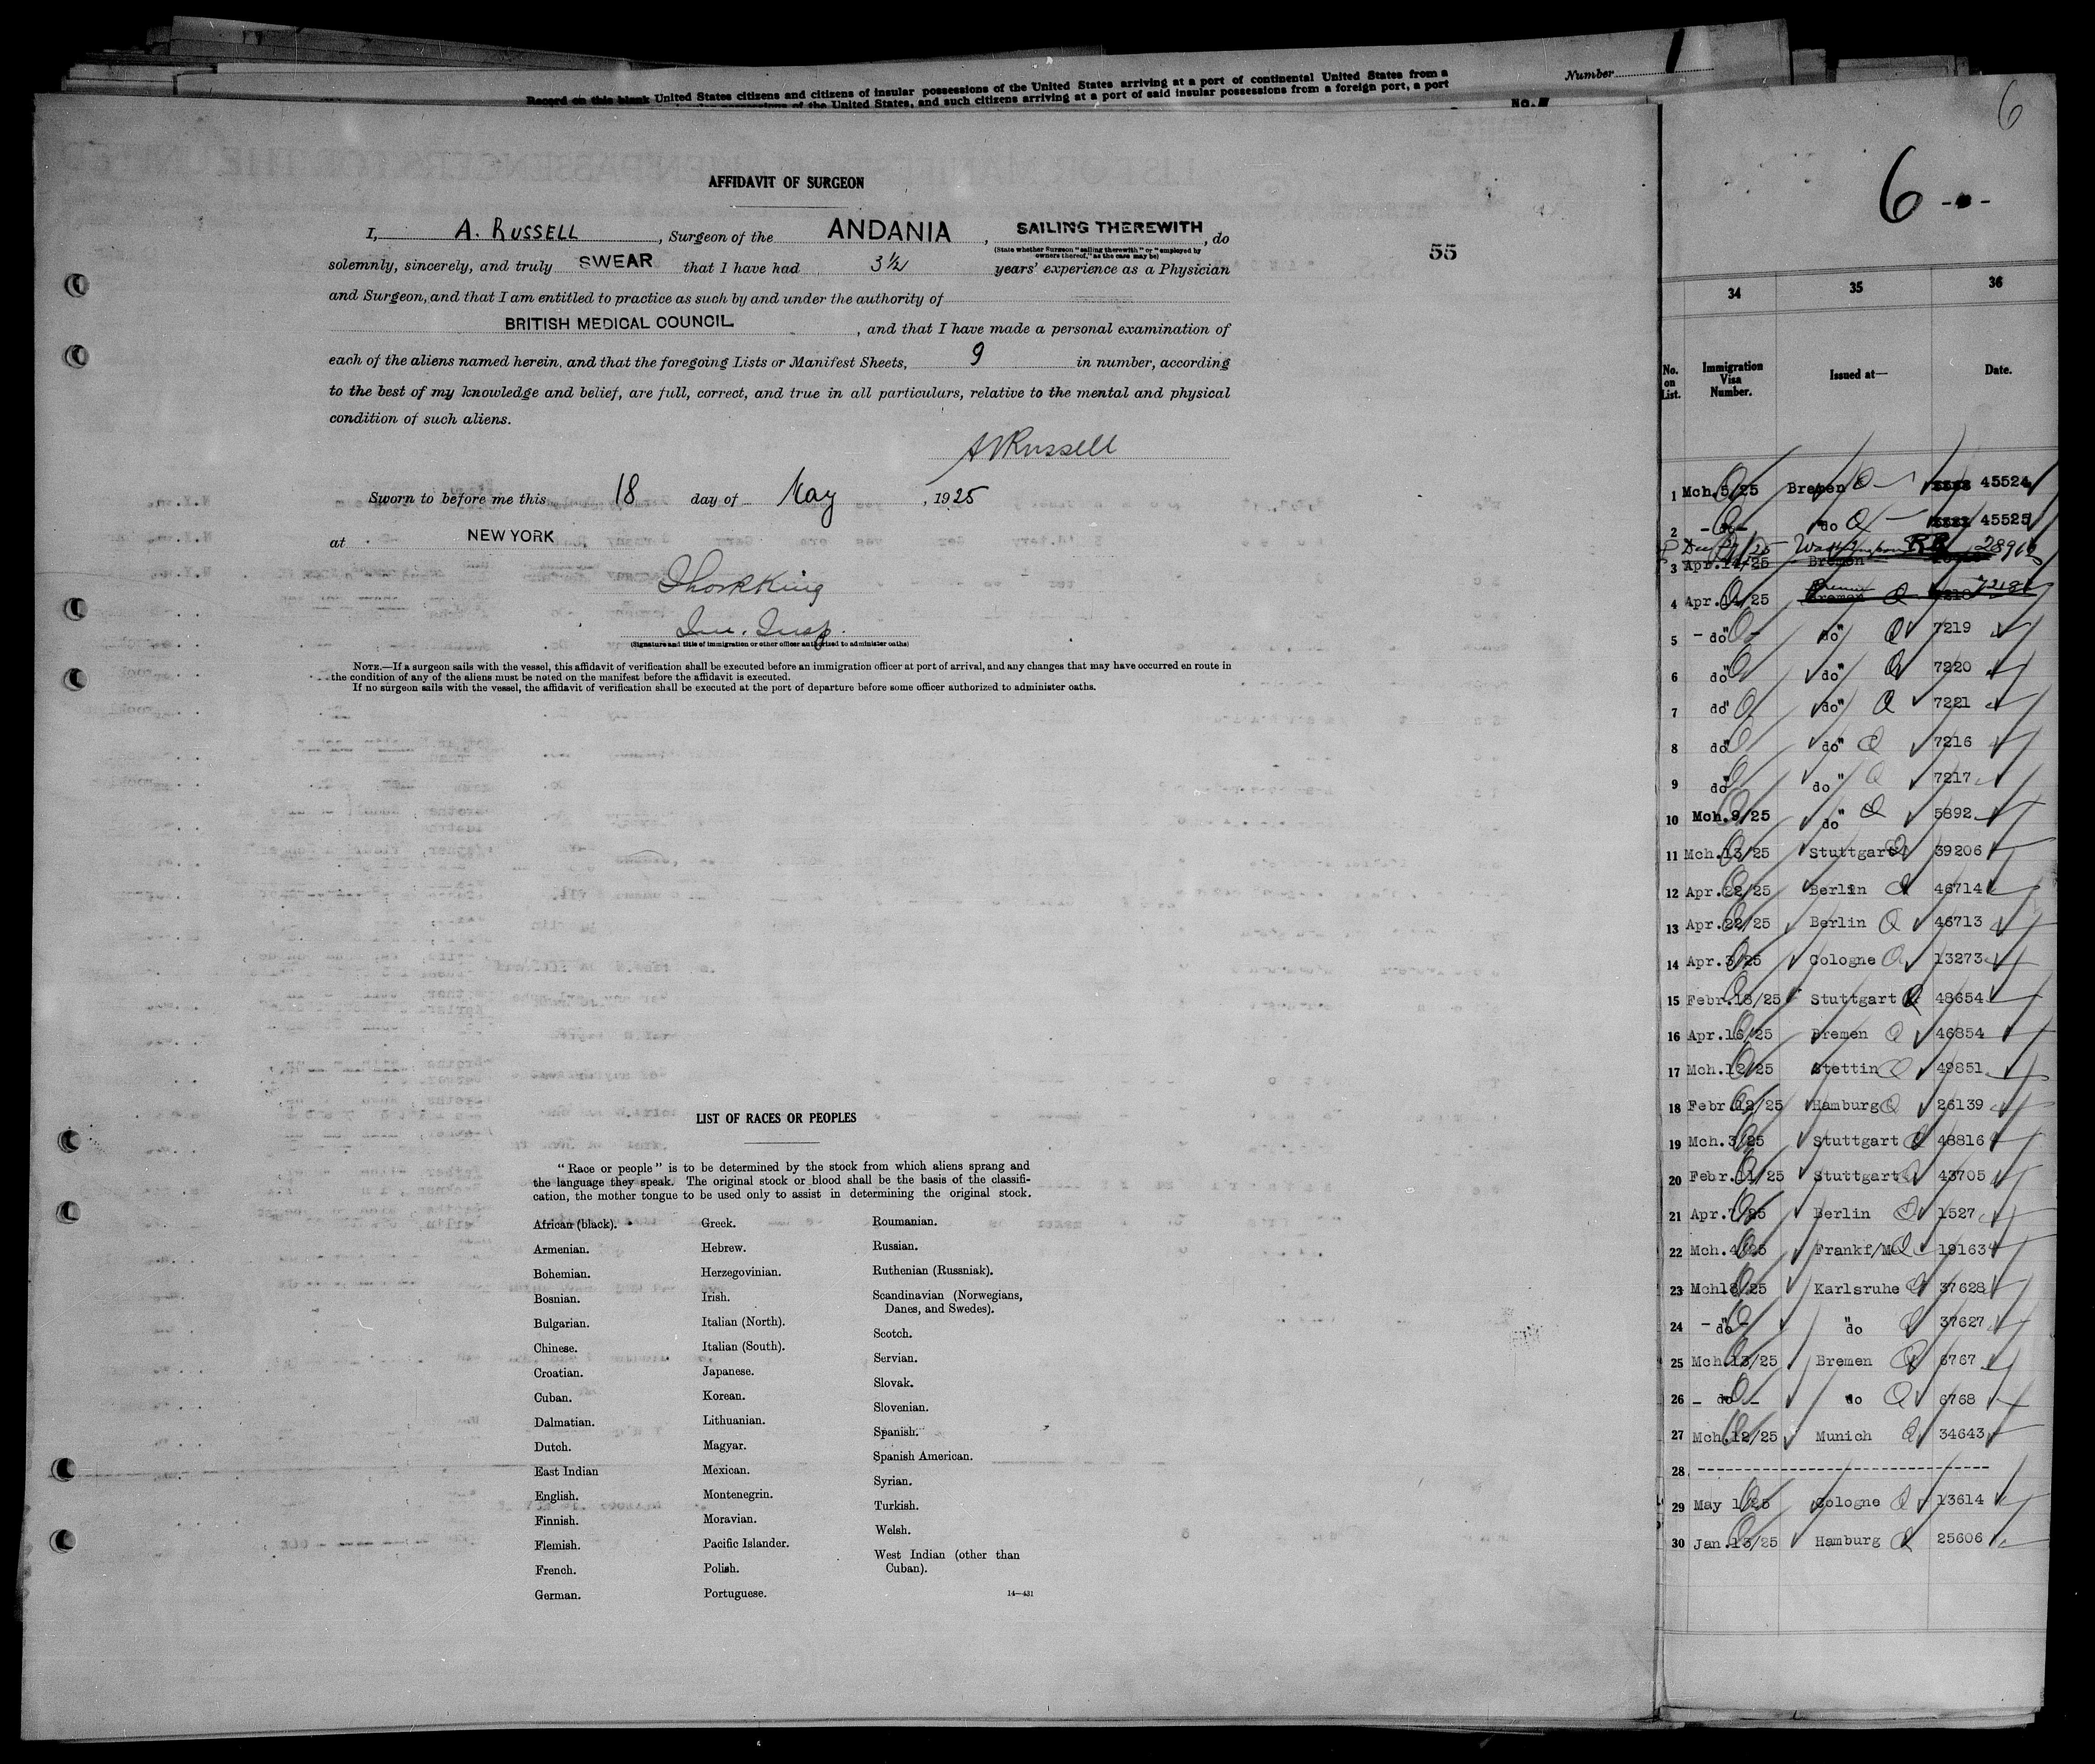 Number 1
Record on this blank United States citizens and citizens of insular possessions of the United States arriving at a port of continental United States from a
of the United States, and such citizens arriving at a port of said insular possessions from a foreign port, a port
No.
6
6
55
AFFIDAVIT OF SURGEON
I, A. RUSSELL, Surgeon of the ANDANIA, SAILING THEREWITH, do
(State whether Surgeon "sailing therewith" or "employed by
owners thereof," as the case may be)
solemnly, sincerely, and truly SWEAR that I have had 3½ years' experience as a Physician
and Surgeon, and that I am entitled to practice as such by and under the authority of
BRITISH MEDICAL COUNCIL, and that I have made a personal examination of
each of the aliens named herein, and that the foregoing Lists or Manifest Sheets, 9 in number, according
to the best of my knowledge and belief, are full, correct, and true in all particulars, relative to the mental and physical
condition of such aliens.
A Russell
Sworn to before me this 18 day of May, 1925
at NEW YORK
King
Imm. Insp.
(Signature and title of immigration or other officer authorized to administer oaths)
NOTE.—If a surgeon sails with the vessel, this affidavit of verification shall be executed before an immigration officer at port of arrival, and any changes that may have occurred en route in
the condition of any of the aliens must be noted on the manifest before the affidavit is executed.
If no surgeon sails with the vessel, the affidavit of verification shall be executed at the port of departure before some officer authorized to administer oaths.
LIST OF RACES OR PEOPLES
"Race or people" is to be determined by the stock from which aliens sprang and
the language they speak. The original stock or blood shall be the basis of the classifi-
cation, the mother tongue to be used only to assist in determining the original stock.
African (black).
Armenian.
Bohemian.
Bosnian.
Bulgarian.
Chinese.
Croatian.
Cuban.
Dalmatian.
Dutch.
East Indian
English.
Finnish.
Flemish.
French.
German.
Greek.
Hebrew.
Herzegovinian.
Irish.
Italian (North).
Italian (South).
Japanese.
Korean.
Lithuanian.
Magyar.
Mexican.
Montenegrin.
Moravian.
Pacific Islander.
Polish.
Portuguese.
Roumanian.
Russian.
Ruthenian (Russniak).
Scandinavian (Norwegians,
Danes, and Swedes).
Scotch.
Servian.
Slovak.
Slovenian.
Spanish.
Spanish American.
Syrian.
Turkish.
Welsh.
West Indian (other than
Cuban).
14—431
34 35 36
No. on List. Immigration Visa Number. Issued at— Date.
1 Mch.5/25 Bremen 45524
2 - do - do 45525
Washington 28966
3 Apr.14/25 Bremen
4 Apr.14/25 Bremen 7218
5 - do - do 7219
6 do do 7220
7 do do 7221
8 do do 7216
9 do do 7217
10 Mch.9/25 do 5892
11 Mch.13/25 Stuttgart 39206
12 Apr.22/25 Berlin 46714
13 Apr.22/25 Berlin 46713
14 Apr.3/25 Cologne 13273
15 Febr.18/25 Stuttgart 48654
16 Apr.16/25 Bremen 46854
17 Mch.12/25 Stettin 49851
18 Febr.12/25 Hamburg 26139
19 Mch.3/25 Stuttgart 48816
20 Febr.11/25 Stuttgart 43705
21 Apr.7/25 Berlin 1527
22 Mch.4/25 Frankf/M 19163
23 Mch18/25 Karlsruhe 37628
24 - do - do 37627
25 Mch.13/25 Bremen 6767
26 - do - do 6768
27 Mch.12/25 Munich 34643
28 ------------------------------
29 May 1/25 Cologne 13614
30 Jan.13/25 Hamburg 25606